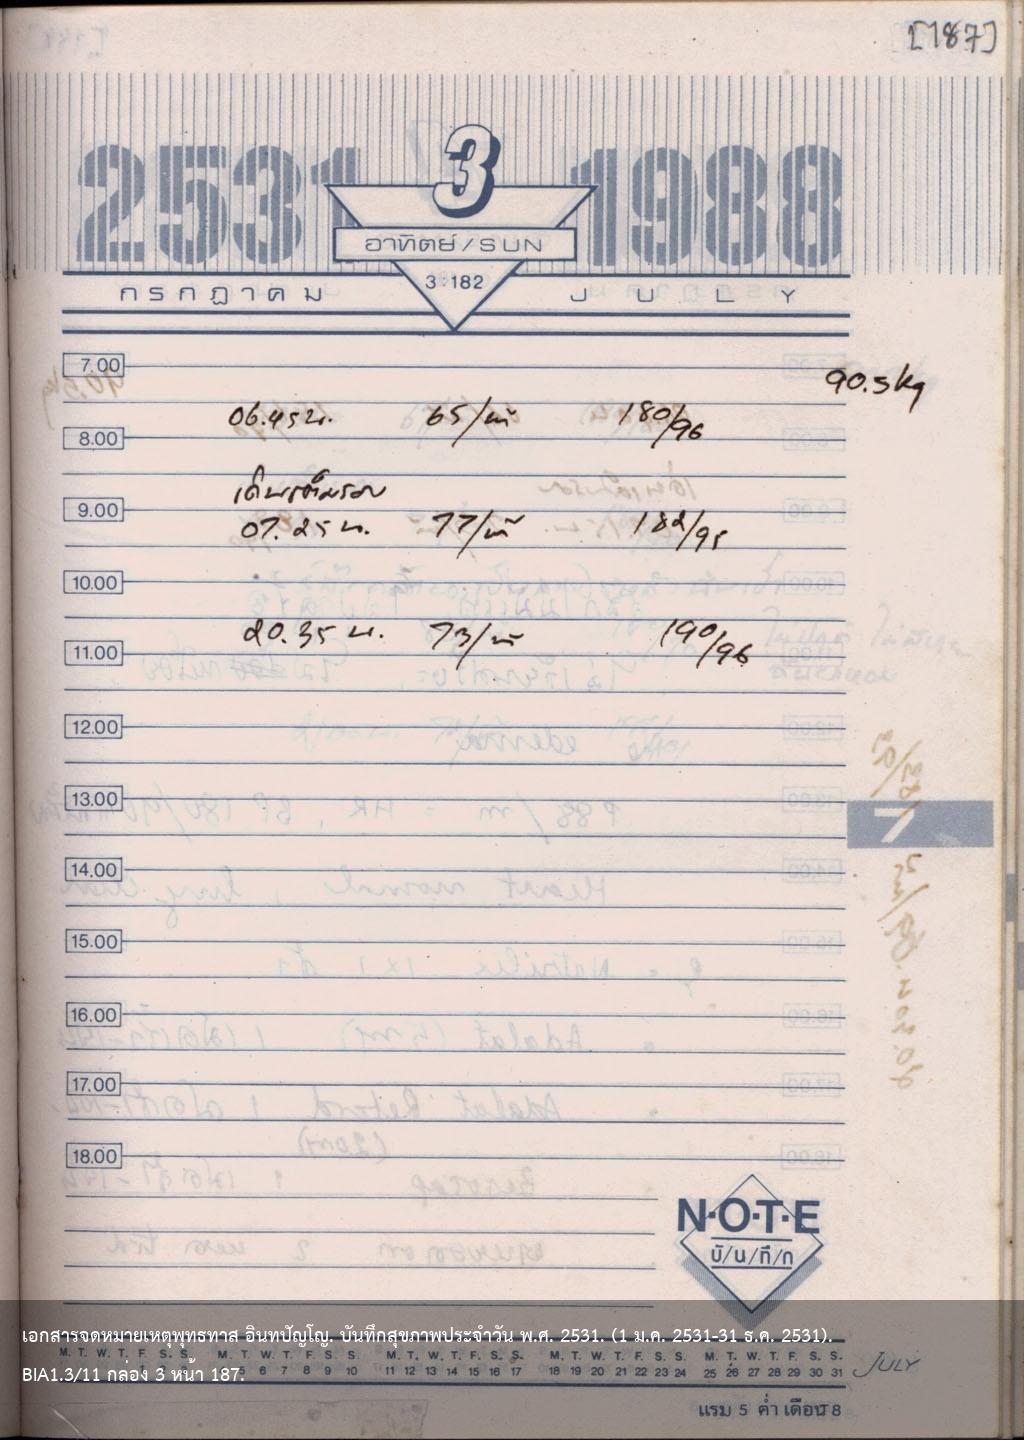 [187]
2531 3 1988
อาทิตย์/SUN
3-182
กรกฎาคม JULY
7.00
90.5 kg
06.45 น. 65/นาที 180/96
8.00
เดินเต็มรอบ
9.00
07.25 น. 77/นาที 182/95
10.00
20.35 น. 73/นาที 190/96
11.00
12.00
13.00
7
14.00
15.00
16.00
17.00
18.00
N·O·T·E
บั/น/ทึ/ก
เอกสารจดหมายเหตุพุทธทาส อินทปัญโญ. บันทึกสุขภาพประจำวัน พ.ศ. 2531. (1 ม.ค. 2531-31 ธ.ค. 2531).
M. T. W. T. F. S. S. M. T. W. T. F. S. S. M. T. W. T. F. S. S. M. T. W. T. F. S. S. M. T. W. T. F. S. S. JULY
1 2 3 4 5 6 7 8 9 10 11 12 13 14 15 16 17 18 19 20 21 22 23 24 25 26 27 28 29 30 31
BIA1.3/11 กล่อง 3 หน้า 187.
แรม 5 ค่ำ เดือน 8